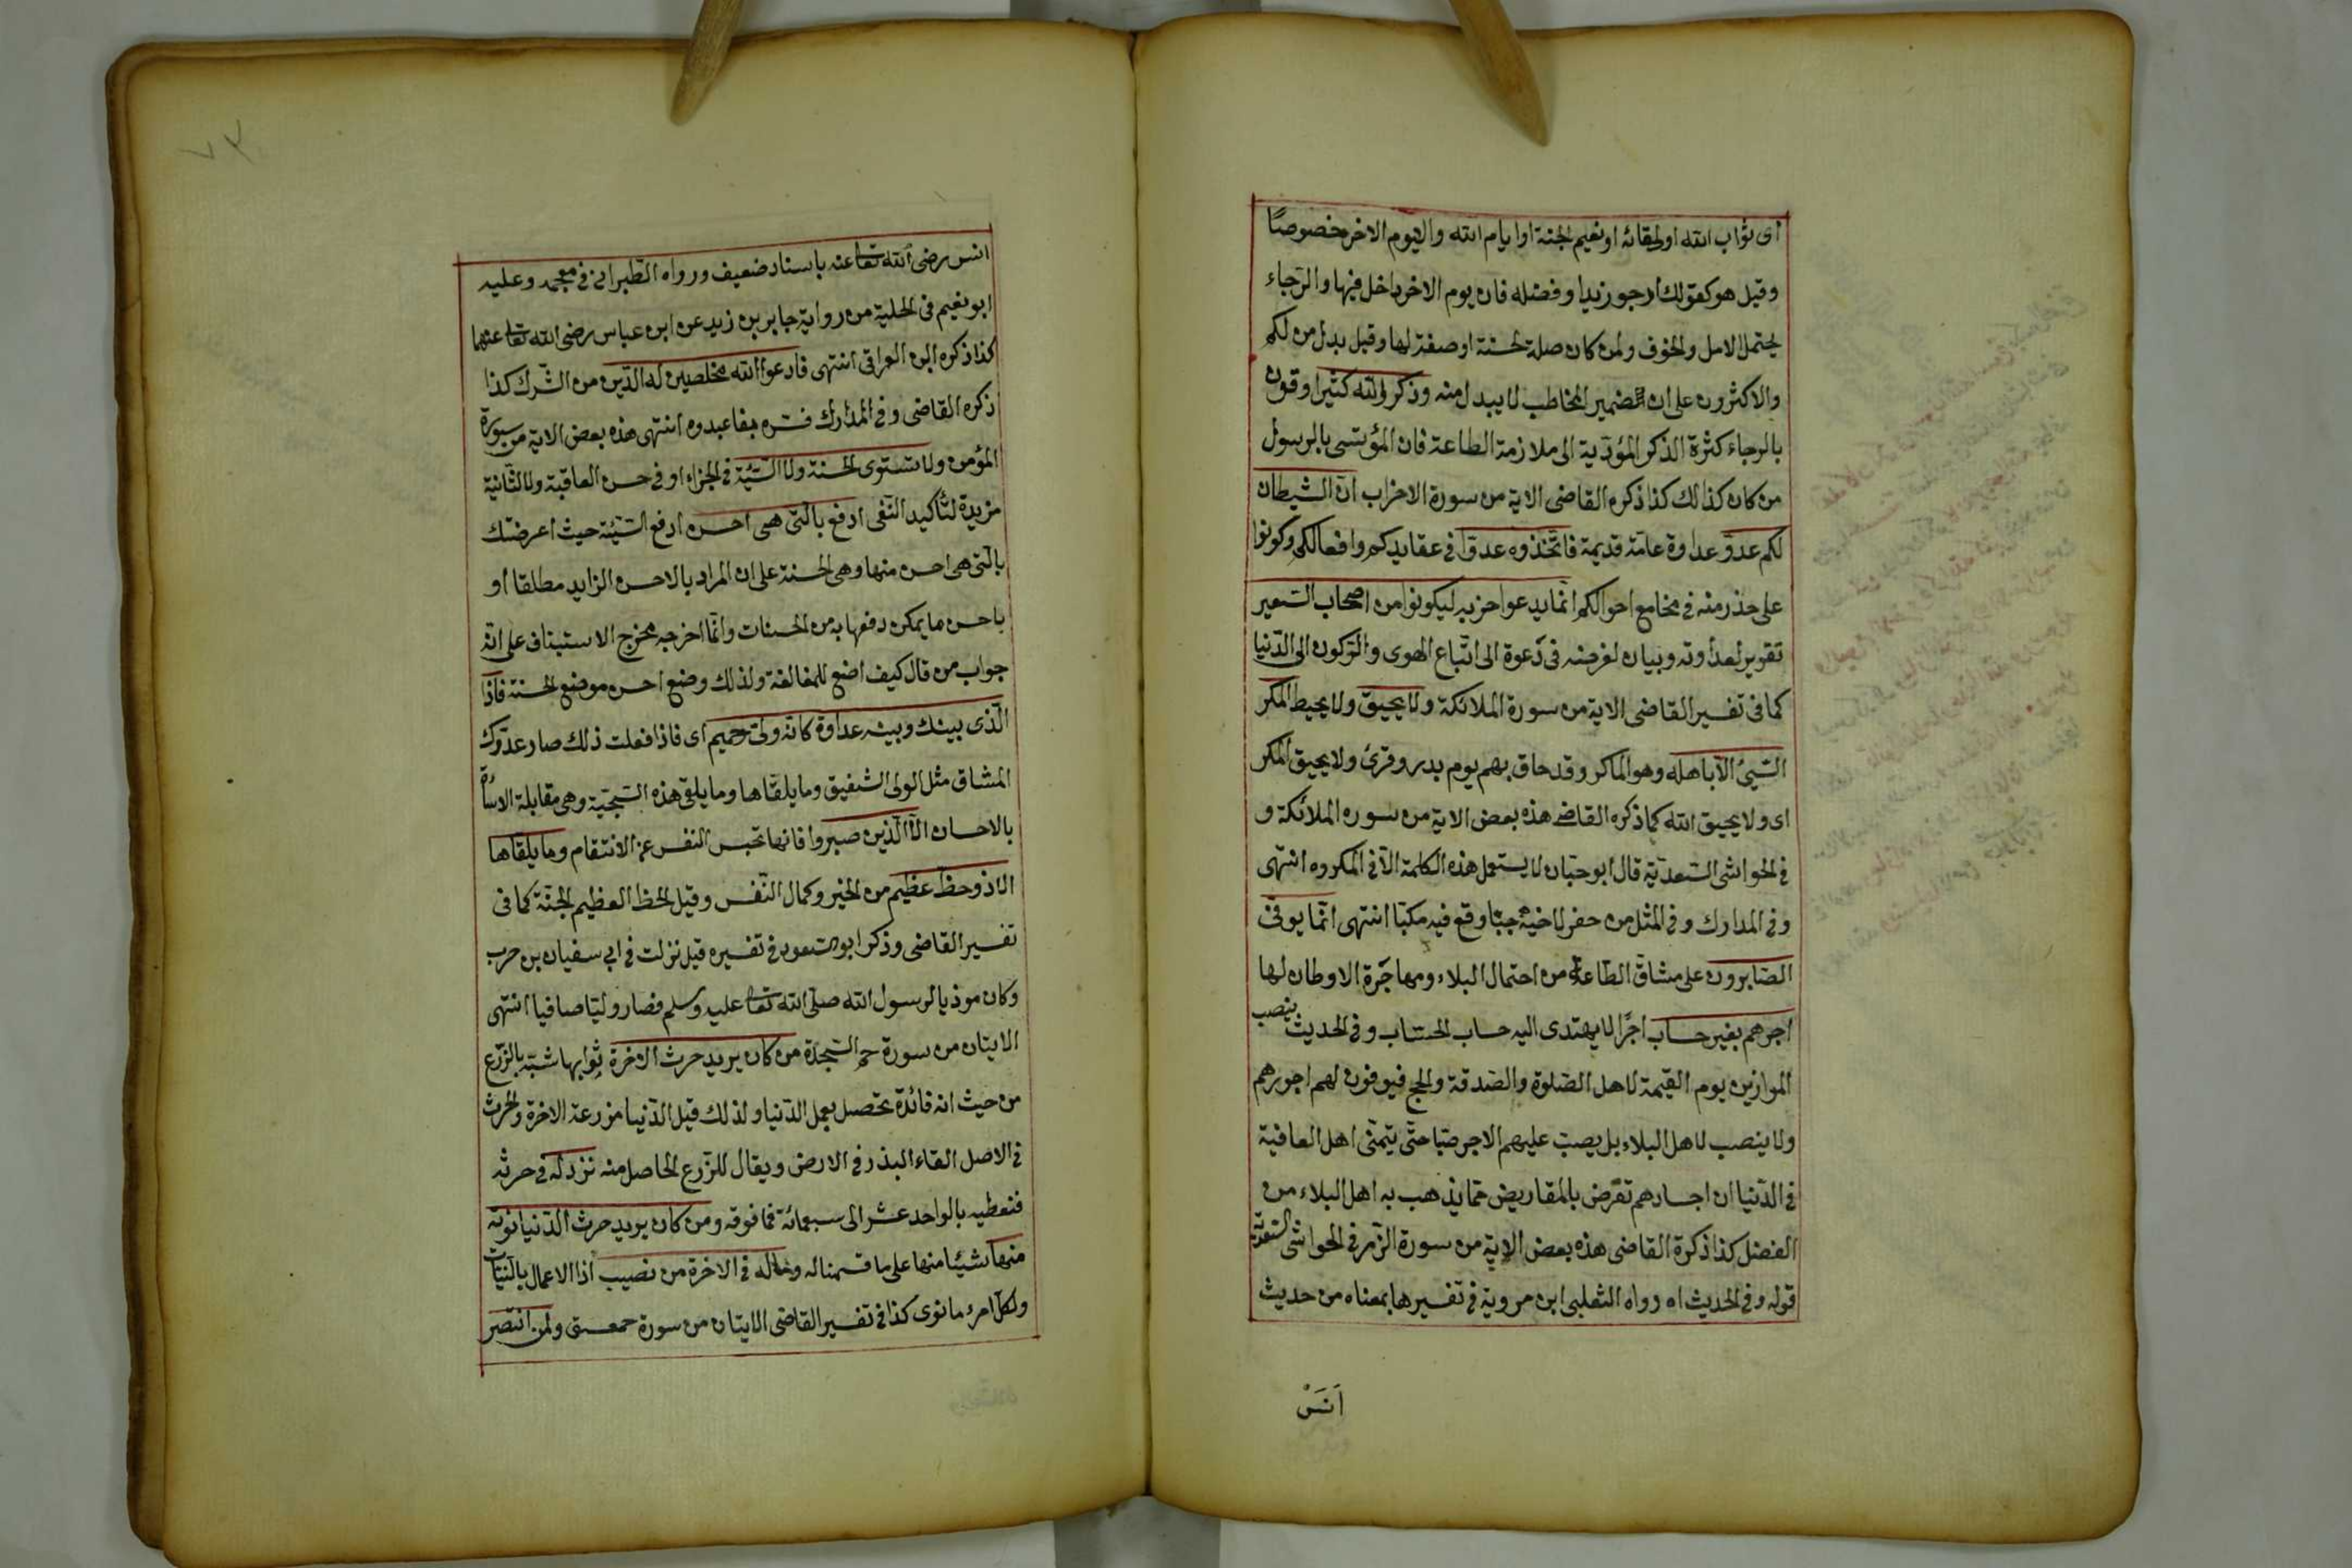 أى ثواب الله او لقائه او نعيم الجنة او ايام الله واليوم الاخر خصوصًا
وقيل هو كقولك ارجو زيدا وفضله فان يوم الاخر داخل فيها والرجاء
يحتمل الامل والخوف ولمن كان صلة لحسنة او صفة لها وقيل بدل من لكم
والاكثرون على ان ضمير المخاطب لا يبدل منه وذكر الله كثيرا وقرن
بالرجاء كثرة الذكر المؤدّية الى ملازمة الطاعة فان المؤتسى بالرسول
من كان كذالك كذا ذكره القاضى الاية من سورة الاحزاب انّ الشيطان
لكم عدوّ عداوة عامّة قديمة فاتّخذوه عدوّا فى عقايدكم وافعالكم وكونوا
على حذر منه فى مجامع احوالكم انّما يدعوا حزبه ليكونوا من اصحاب السّعير
تقرير لعداوته وبيان لغرضه فى دعوة الى اتّباع الهوى والرّكون الى الدّنيا
كما فى تفسير القاضى الاية من سورة الملائكة ولا يحيق ولا يحيط المكر
السّيئ الّا باهله وهو الماكر وقد حاق بهم يوم بدر وقرئ ولا يحيق المكر
اى ولا يحيق الله كما ذكره القاضى هذه بعض الاية من سوره الملائكة و
فى الحواشى السّعديّة قال ابو حيّان لا يستعمل هذه الكلمة الّا فى المكروه انتهى
وفى المدارك وفى المثل من حفر لاخيه جبّا وقع فيه مكبّا انتهى انّما يوفّى
الصّابرون على مشاقّ الطّاعة من احتمال البلاء ومهاجَرة الاوطان لها
اجرهم بغير حساب اجرًا لا يهتدى اليه حساب الحسّاب وفى الحديث ينصب
الموازين يوم القيمة لاهل الصّلوة والصّدقة والحج فيوفون لهم اجورهم
ولا ينصب لاهل البلاء بل يصبّ عليهم الاجر صبّا حتّى يتمنّى اهل العافية
فى الدّنيا ان اجسادهم تقرض بالمقاريض ممّا يذهب به اهل البلاء من
الفضل كذا ذكرة القاضى هذه بعض الاية من سورة الزّمر فى الحواشى السّعديّة
قوله وفى الحديث اه رواه الثعلبى ابن مروية فى تفسيرها بمعناه من حديث
اَنَسْ
٧٣
انس رضى الله تعا عنه باسناد ضعيف ورواه الطّبرانى فى معجمه وعليه
ابو نعيم فى الحلية من رواية جابر بن زيد عن ابن عباس رضى الله تعا عنهما
كذا ذكره ابن العراقى انتهى فادعوا الله مخلصين له الدّين من الشّرك كذا
ذكره القاضى وفى المدارك فسّره بفاعبدوه انتهى هذه بعض الاية من سورة
المؤمن ولا تستوى الحسنة ولا السّيّئة فى الجزاء او فى حسن العاقبة ولا الثّانية
مزيدة لتأكيد النّفى ادفع بالّتى هى احسن ادفع السّيّئة حيث اعرضتك
بالّتى هى احسن منها وهى الحسنة على ان المراد بالاحسن الزايد مطلقا او
باحسن ما يمكن دفعها به من الحسنات وانّما اخرجه مخرج الاستيناف على انّه
جواب من قال كيف اضع للمغالغة ولذلك وضع احسن موضع الحسنة فاذا
الّذى بينك وبينه عداوة كانّه ولىّ حميم اى فاذا فعلت ذلك صار عدوّك
المشاق مثل الولى الشفيق وما يلقّاها وما يلقى هذه السّجيّة وهى مقابلة الاساءة
بالاحسان الّا الّذين صبروا فانها تحبس النفس عن الانتقام وما يلقاها
الا ذو حظّ عظيم من الخير وكمال النّفس وقيل الحظ العظيم الجنّة كما فى
تفسير القاضى وذكر ابو السّعود فى تفسيره قيل نزلت فى ابى سفيان بن حرب
وكان موذيا لرسول الله صلّى الله تعا عليه وسلم فصار وليّا صافيا انتهى
الايتان من سورة حم السّجدة من كان يريد حرث الاخرة ثوابها شبّه بالزّرع
من حيث انه فائدة تحصل بعمل الدّنيا ولذلك قيل الدّنيا مزرعة الاخرة والحرث
فى الاصل القاء البذر فى الارض ويقال للزّرع الحاصل منه نزد له فى حرثه
فنعطيه بالواحد عشر الى سبعمائة فما فوقه ومن كان يريد حرث الدّنيا نوته
منها شيئا منها على ما قسمنا له وماله فى الاخرة من نصيب اذا الاعمال بالنّيّات
ولكلّ امرء ما نوى كذا فى تفسير القاضى الايتان من سورة حمعسق ولمن انتصر